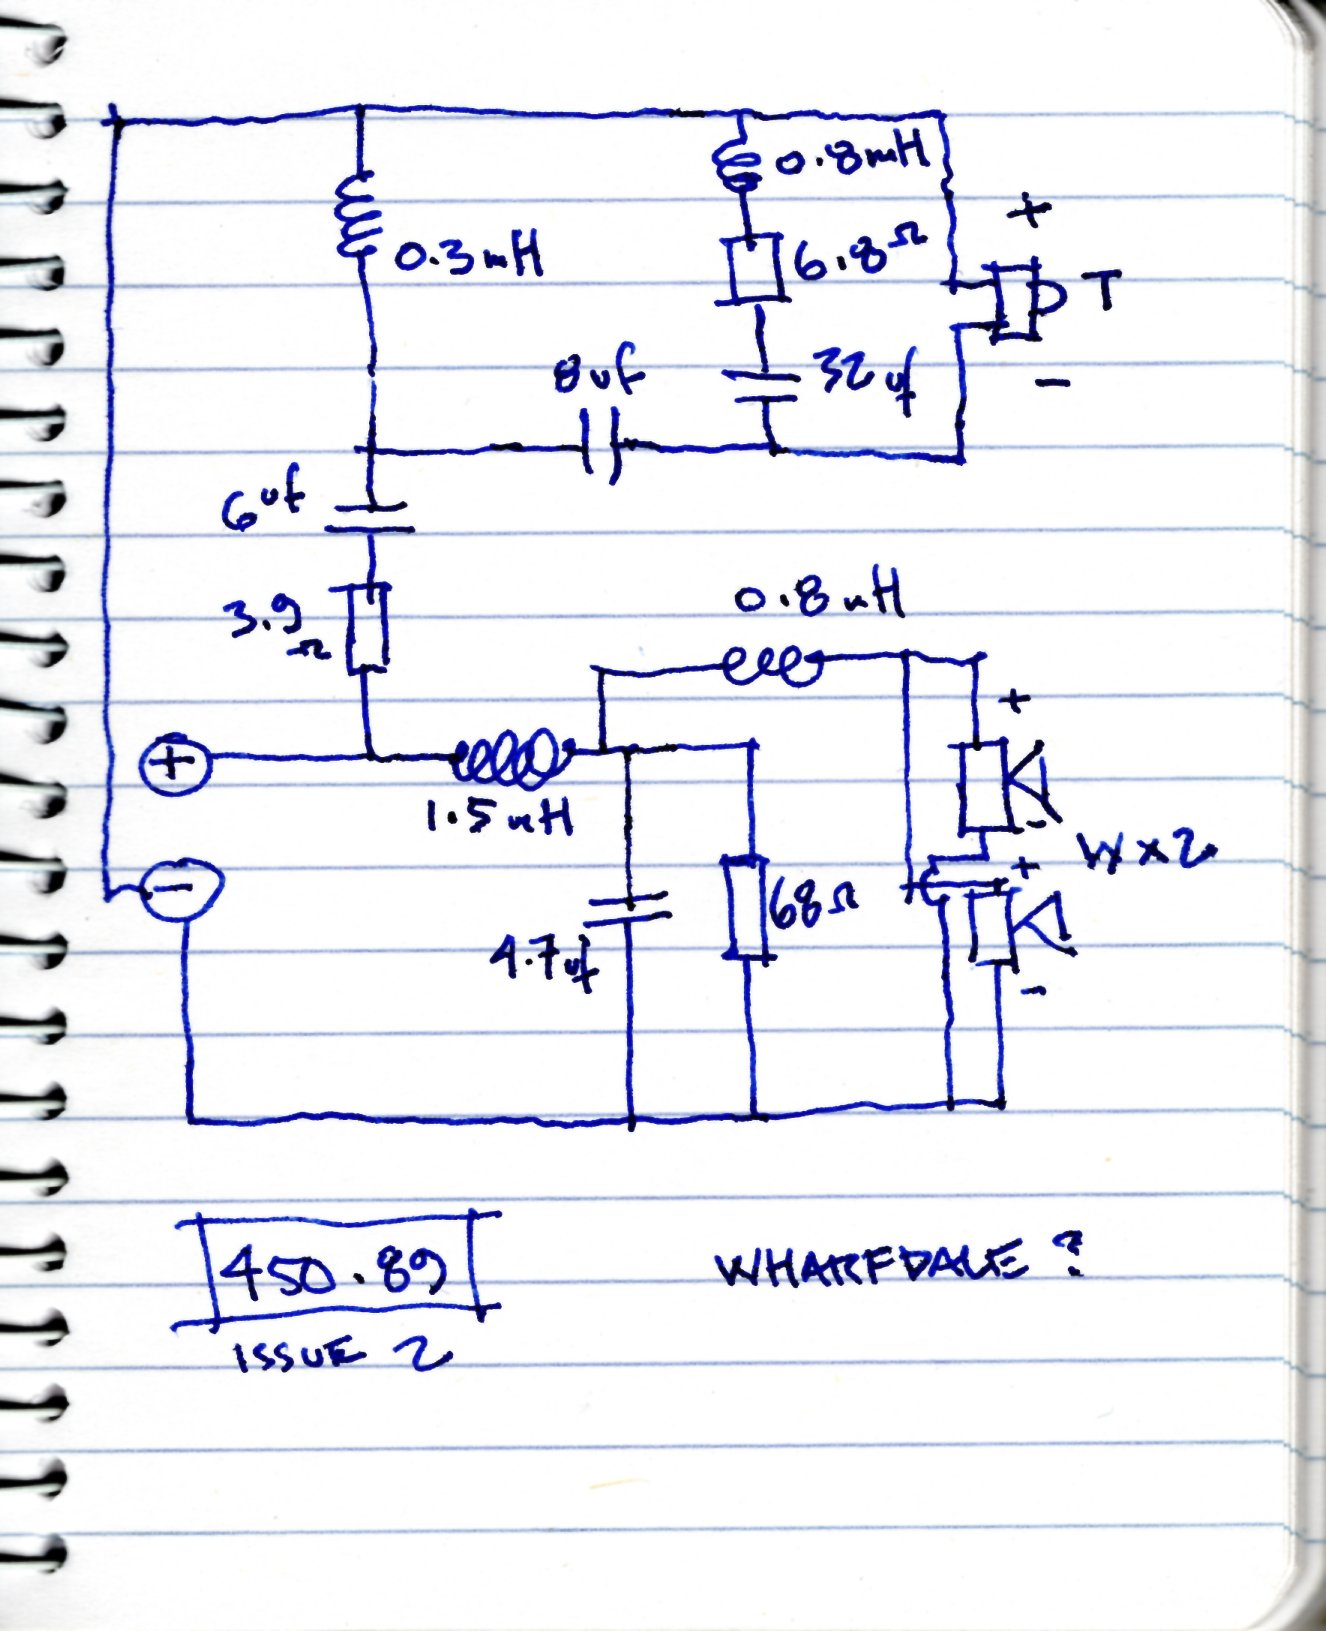 0.8mH
+
6.8Ω
0.3mH
T
8uf
32uf
-
6uf
3.9
Ω
0.8mH
+
+
1.5mH
-
W x 2
+
-
68Ω
4.7uf
-
450.89
WHARFDALE ?
ISSUE 2